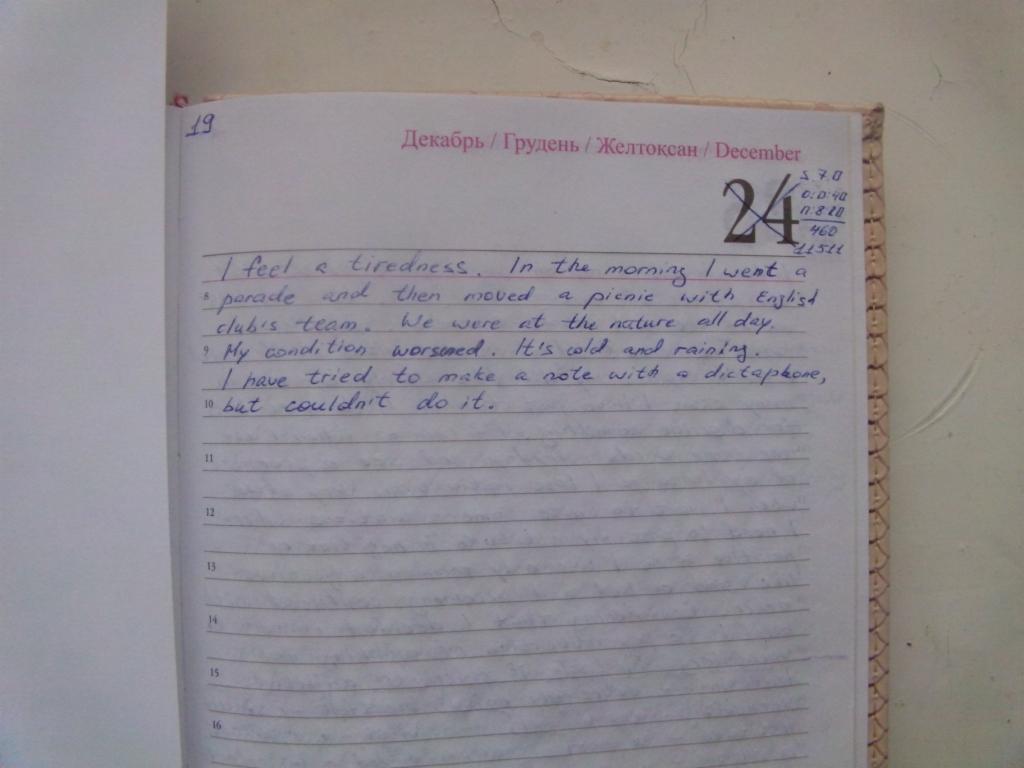 19
Декабрь / Грудень / Желтоқсан / December
24
S 7.0
460
11511
I feel a tiredness. In the morning I went a
8 parade and then moved a picnic with English
club's team. We were at the nature all day.
9 My condition worsened. It's cold and raining.
I have tried to make a note with a dictaphone,
10 but couldn't do it.
11
12
13
14
15
16